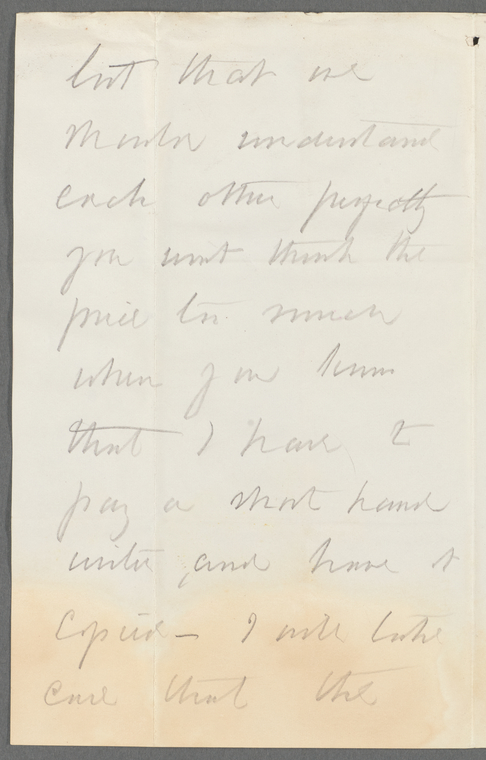 but that we
should understand
each other perfectly
you wont think the
price too much
when you know
that I have to
pay a short hand
writer, and have it
copied – I will take
care that the